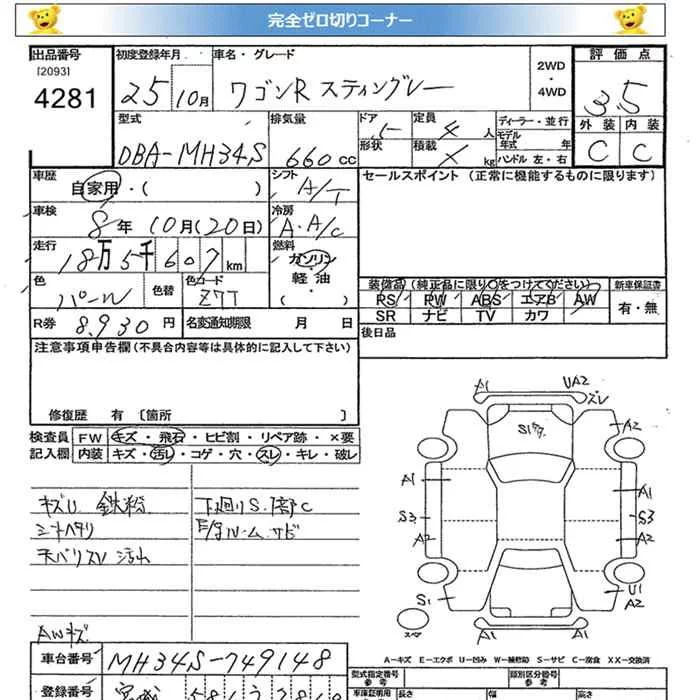 完全ゼロ切りコーナー
出品番号 初度登録年月 車名・グレード 2WD 評価点
[2093]
4281 25 10月 ワゴンR スティングレー ・4WD 3.5
型式 排気量 ドア 定員 ディーラー・並行 外装 内装
DBA-MH34S 660cc 5 4人 モデル年式 年 C C
形状 積載 kg ハンドル 左・右
車歴 自家用・( ) シフト A/T セールスポイント(正常に機能するものに限ります)
車検 8年10月(20日) 冷房 A・A/C
走行 18万5千607km 燃料 ガソリン
軽油
・( )
色 パール 色替 色コード Z7T 装備品(純正品に限り○をつけてください) 新車保証書
PS PW ABS エアB AW 有・無
SR ナビ TV カワ
R券 8,930円 名変通知期限 月 日 後日品
注意事項申告欄(不具合内容等は具体的に記入して下さい)
修復歴 有 [箇所 ]
検査員 FW キズ・飛石・ヒビ割・リペア跡・×要
記入欄 内装 キズ・汚レ・コゲ・穴・スレ・キレ・破レ
キズU 鉄粉 下廻りS.1部C
シートヘタリ E/gルーム サビ
天バリスレ 汚れ
AWキズ
A1 UA2
スレ
S1 A2
A1 A1
S3 S3
A2 A2
S1 U1
A2
スペア A1 A1
A-キズ E-エクボ U-凹み W-補修跡 S-サビ C-腐食 XX-交換済
車台番号 MH34S-749148 型式指定番号 参考 類別区分番号 参考
登録番号 宮城 581 車庫証明用 参考 長さ 幅 高さ